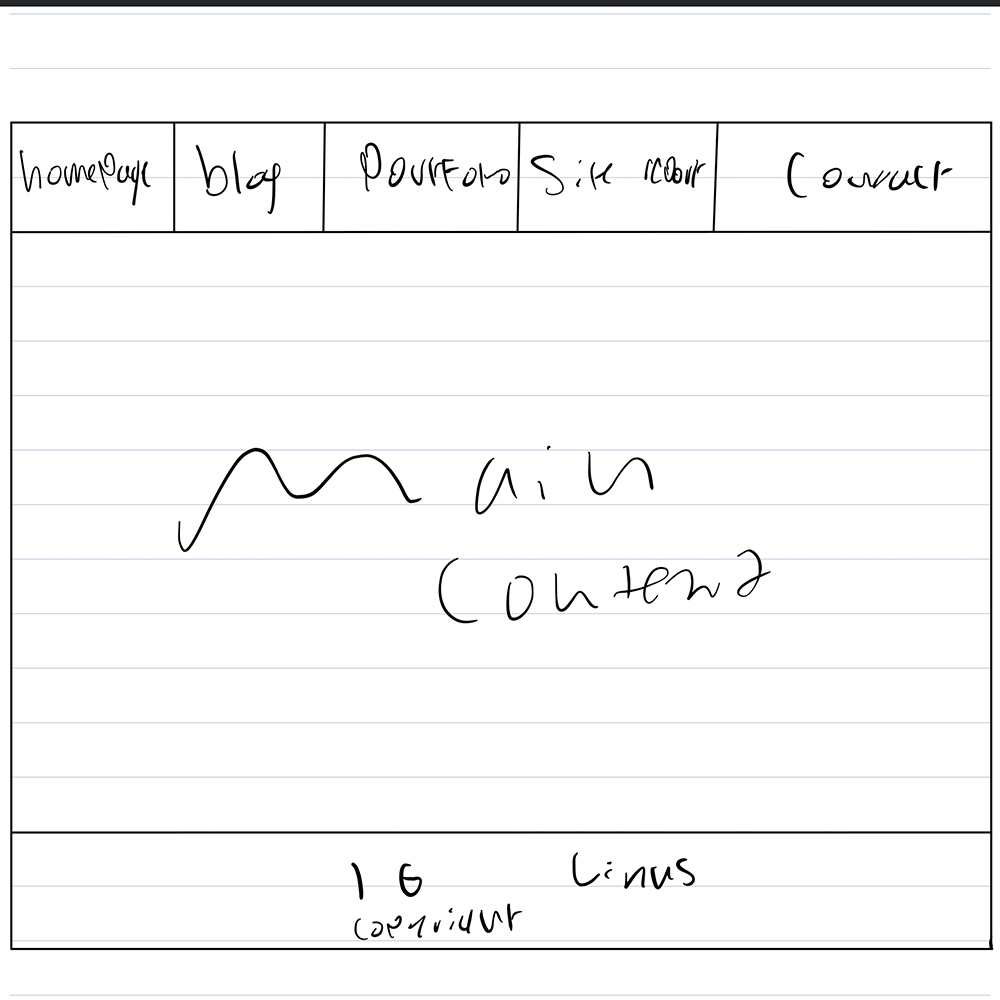 homePage
blog
PourtFolio
Site
Contact
Main
Content
IG
Linus
copyright